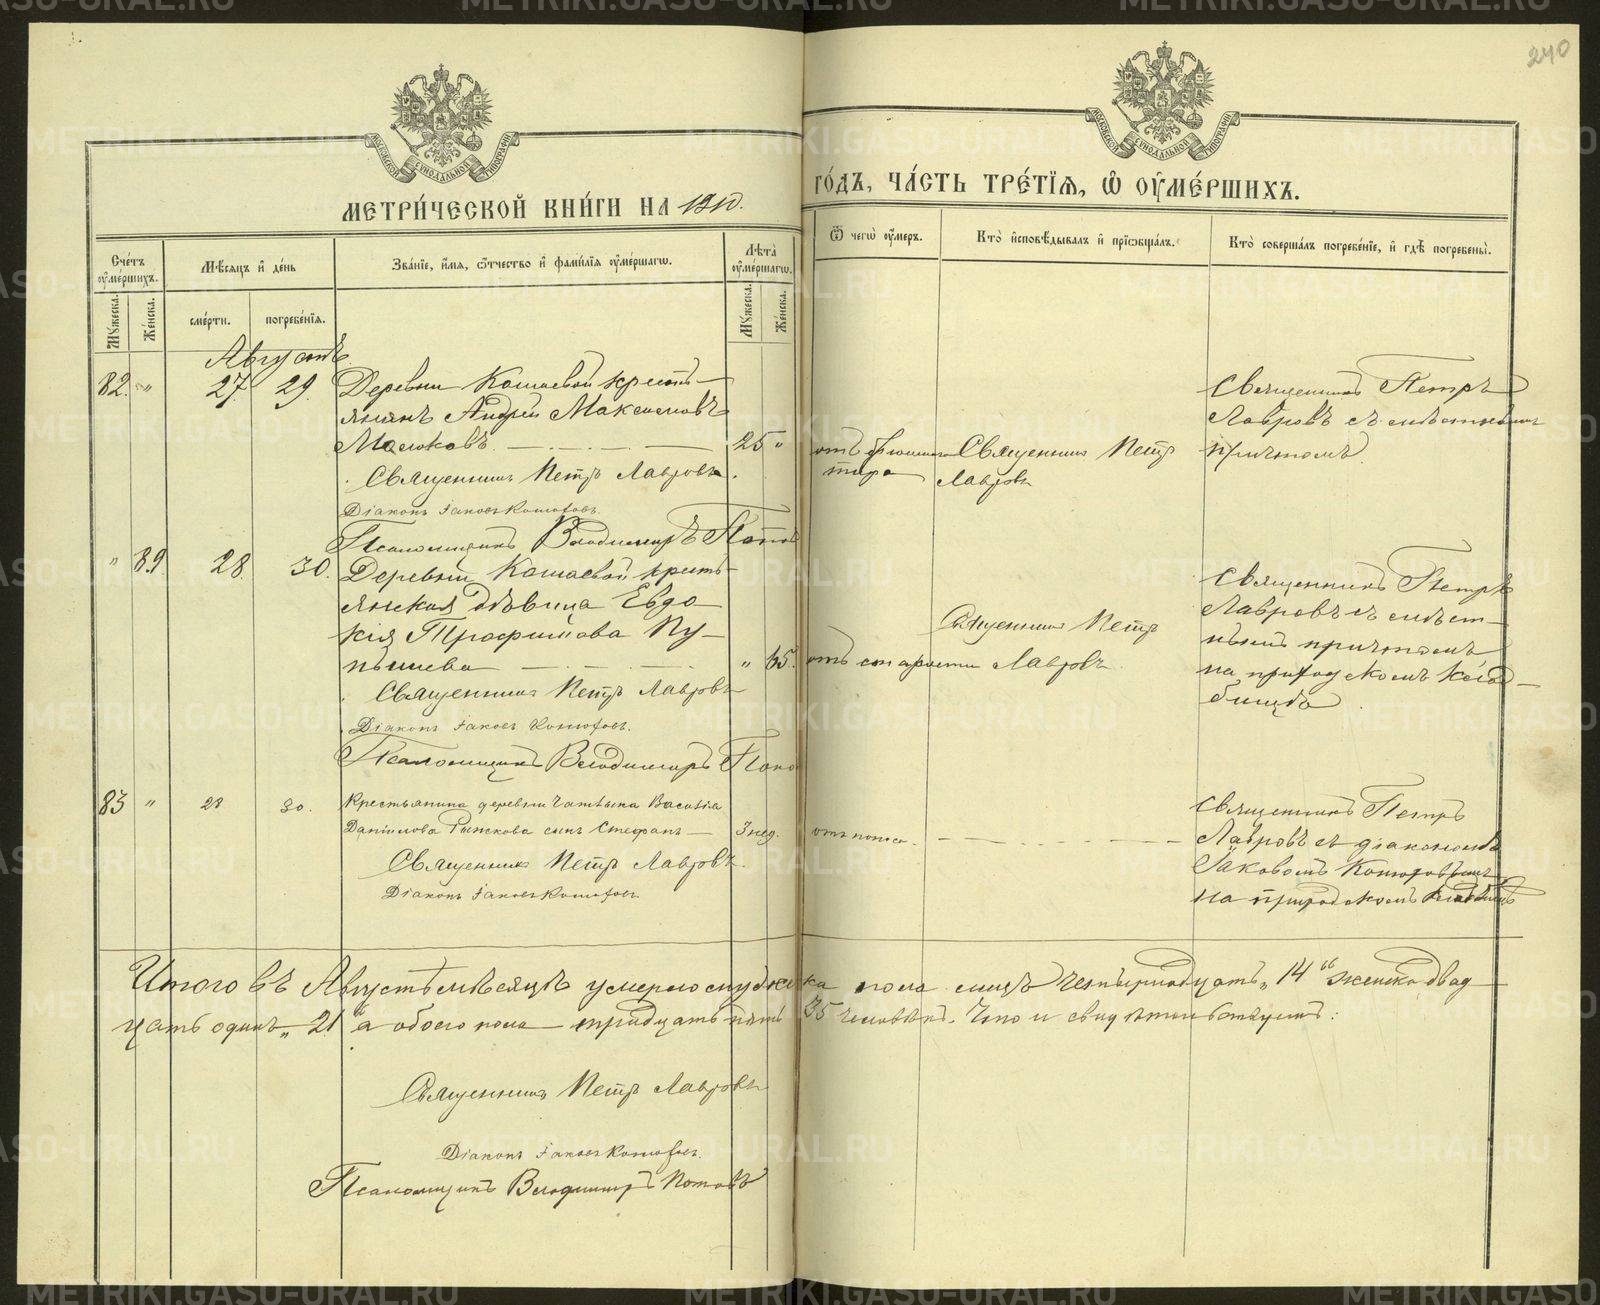 240
МЕТРИ́ЧЕСКОЙ КНИ́ГИ НА 1910. ГО́ДЪ, ЧА́СТЬ ТРЕ́ТІѦ, Ѽ ОУ҆МЕ́РШИХЪ.
Сче́тъ оу҆ме́ршихъ.
Мꙋ́жеска.
Же́нска.
Мѣ́сѧцъ и҆ де́нь
сме́рти.
погребе́нїѧ.
Зва́нїе, и҆́мѧ, ѻ҆́тчество и҆ фами́лїѧ оу҆ме́ршагѡ.
Лѣта̀ оу҆ме́ршагѡ.
Мꙋ́жеска.
Же́нска.
Ѿ чегѡ̀ оу҆́меръ.
Кто̀ и҆сповѣ́дывалъ и҆ прїѡбща́лъ.
Кто̀ соверша́лъ погребе́нїе, и҆ гдѣ̀ погребены̀.
Августъ
82. " 27 29. Деревни Кошаевой кресть-
янинъ Андрей Максимовъ
Малюковъ 25 "
Священникъ Петръ Лавровъ.
Діаконъ Іаковъ Конюховъ.
Псаломщикъ Владимиръ Попов
Священникъ Петръ
Лавровъ
Священникъ Петръ
Лавровъ съ мѣстнымъ
причтомъ
" 89 28. 30. Деревни Кошаевой кресть-
янская дѣвица Евдо
кія Трофимова Пу-
пышева " 65. отъ старости
Священникъ Петръ Лавровъ
Діаконъ Іаковъ Конюховъ.
Псаломщикъ Владимиръ Попо
Священникъ Петръ
Лавровъ
Священникъ Петръ
Лавровъ съ мѣст-
нымъ причтомъ
на приходскомъ клад-
бищѣ
83 " 28 30. Крестьянина деревни Василія
Даніилова сынъ Стефанъ 3 нед. отъ поноса.
Священникъ Петръ Лавровъ.
Діаконъ Іаковъ Конюховъ
Священникъ Петръ
Лавровъ съ діакономъ
Іаковомъ Конюховымъ
на приходскомъ кладбищѣ
Итого въ Августѣ мѣсяцѣ умерло мужска пола лицъ четырнадцать „14“ женска двад
цать одинъ „21“ а обоего пола тридцать пять 35 человѣкъ. Что и свидѣтельствуемъ:
Священникъ Петръ Лавровъ
Діаконъ Іаковъ Конюховъ.
Псаломщикъ Владимиръ Поповъ
METRIKI.GASO-URAL.RU